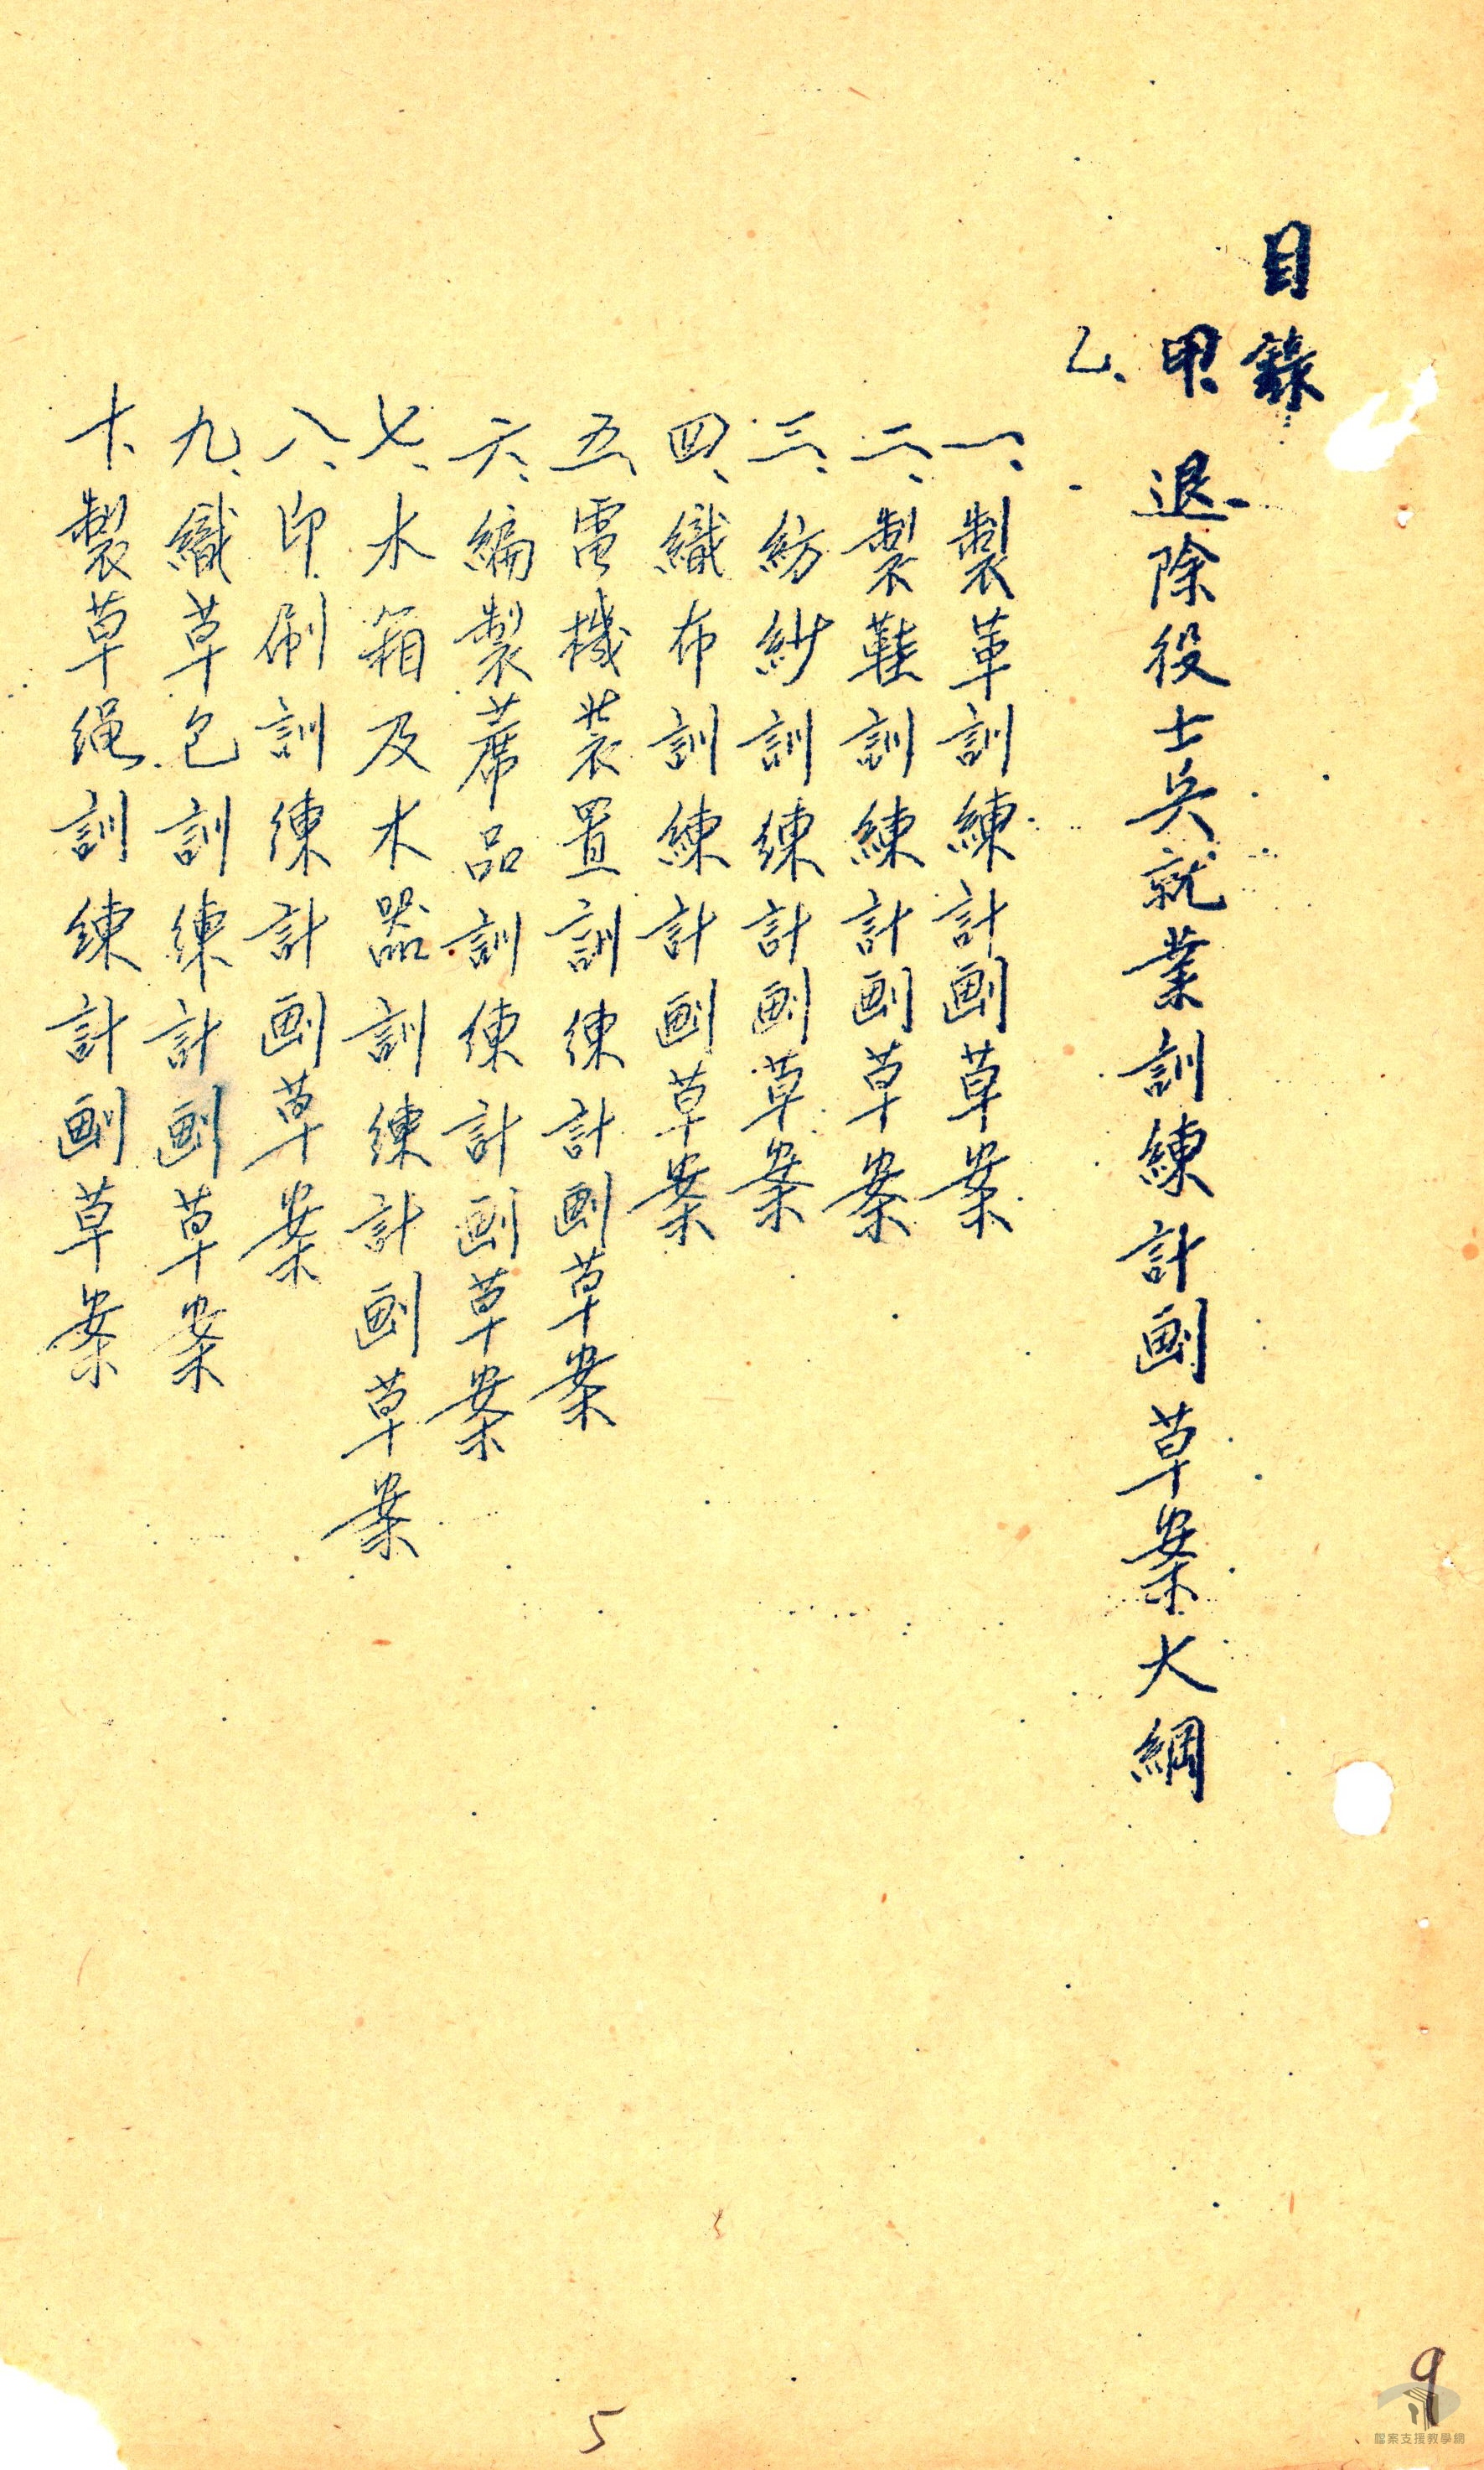 目錄
甲、退除役士兵就業訓練計劃草案大綱
乙、
一、製革訓練計劃草案
二、製鞋訓練計劃草案
三、紡紗訓練計劃草案
四、織布訓練計劃草案
五、電機裝置訓練計劃草案
六、編製蓆品訓練計劃草案
七、木箱及木器訓練計劃草案
八、印刷訓練計劃草案
九、織草包訓練計劃草案
十、製草绳訓練計劃草案
5
9
檔案支援教學網